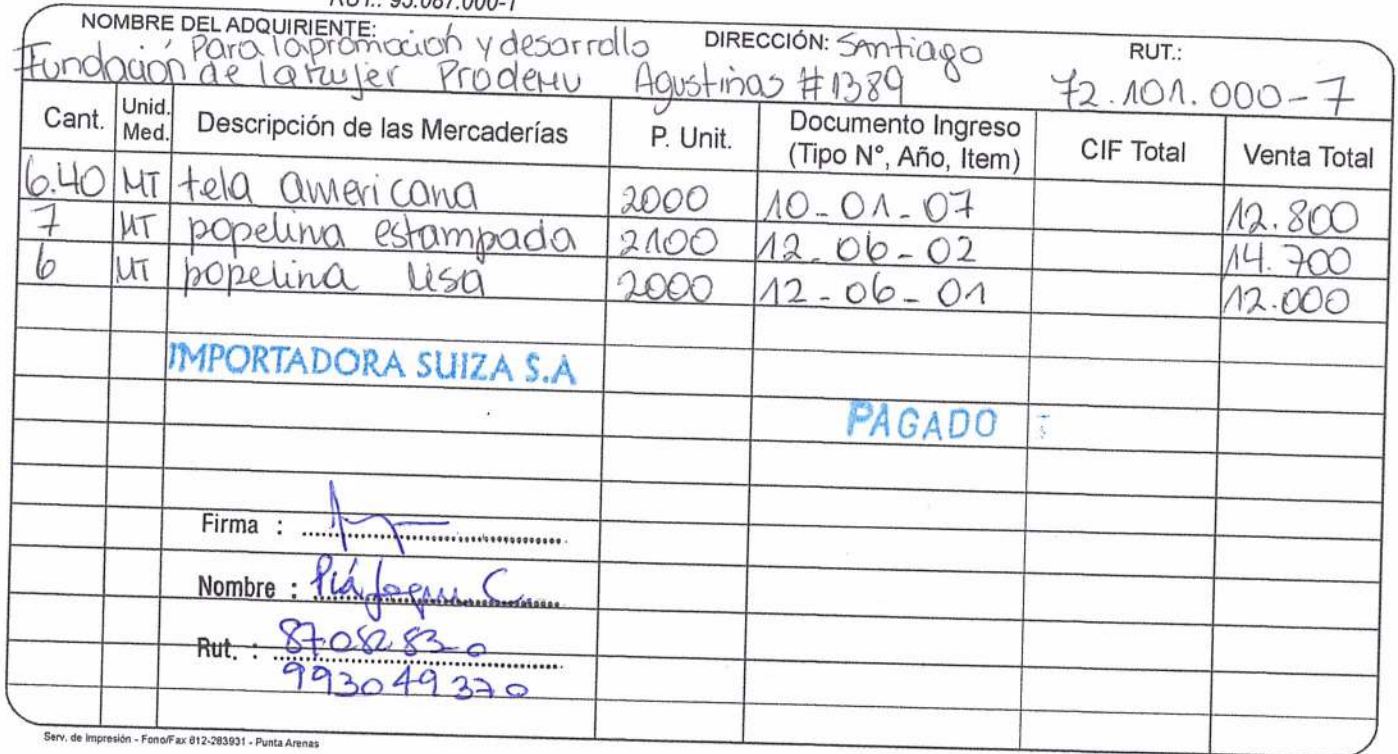 RUT.: 93.087.000-1
NOMBRE DEL ADQUIRIENTE: DIRECCIÓN: Santiago RUT.:
Para la promoción y desarrollo
Fundación de la Mujer Prodemu Agustinas #1389 72.101.000-7
Cant. Unid. Med. Descripción de las Mercaderías P. Unit. Documento Ingreso (Tipo N°, Año, Item) CIF Total Venta Total
6.40 MT tela americana 2000 10-01-07 12.800
7 MT popelina estampada 2100 12-06-02 14.700
6 MT popelina lisa 2000 12-06-01 12.000
IMPORTADORA SUIZA S.A
PAGADO
Firma :
Nombre : Piá C.
Rut. : 8708283-0
993049370
Serv. de Impresión - Fono/Fax 612-283931 - Punta Arenas